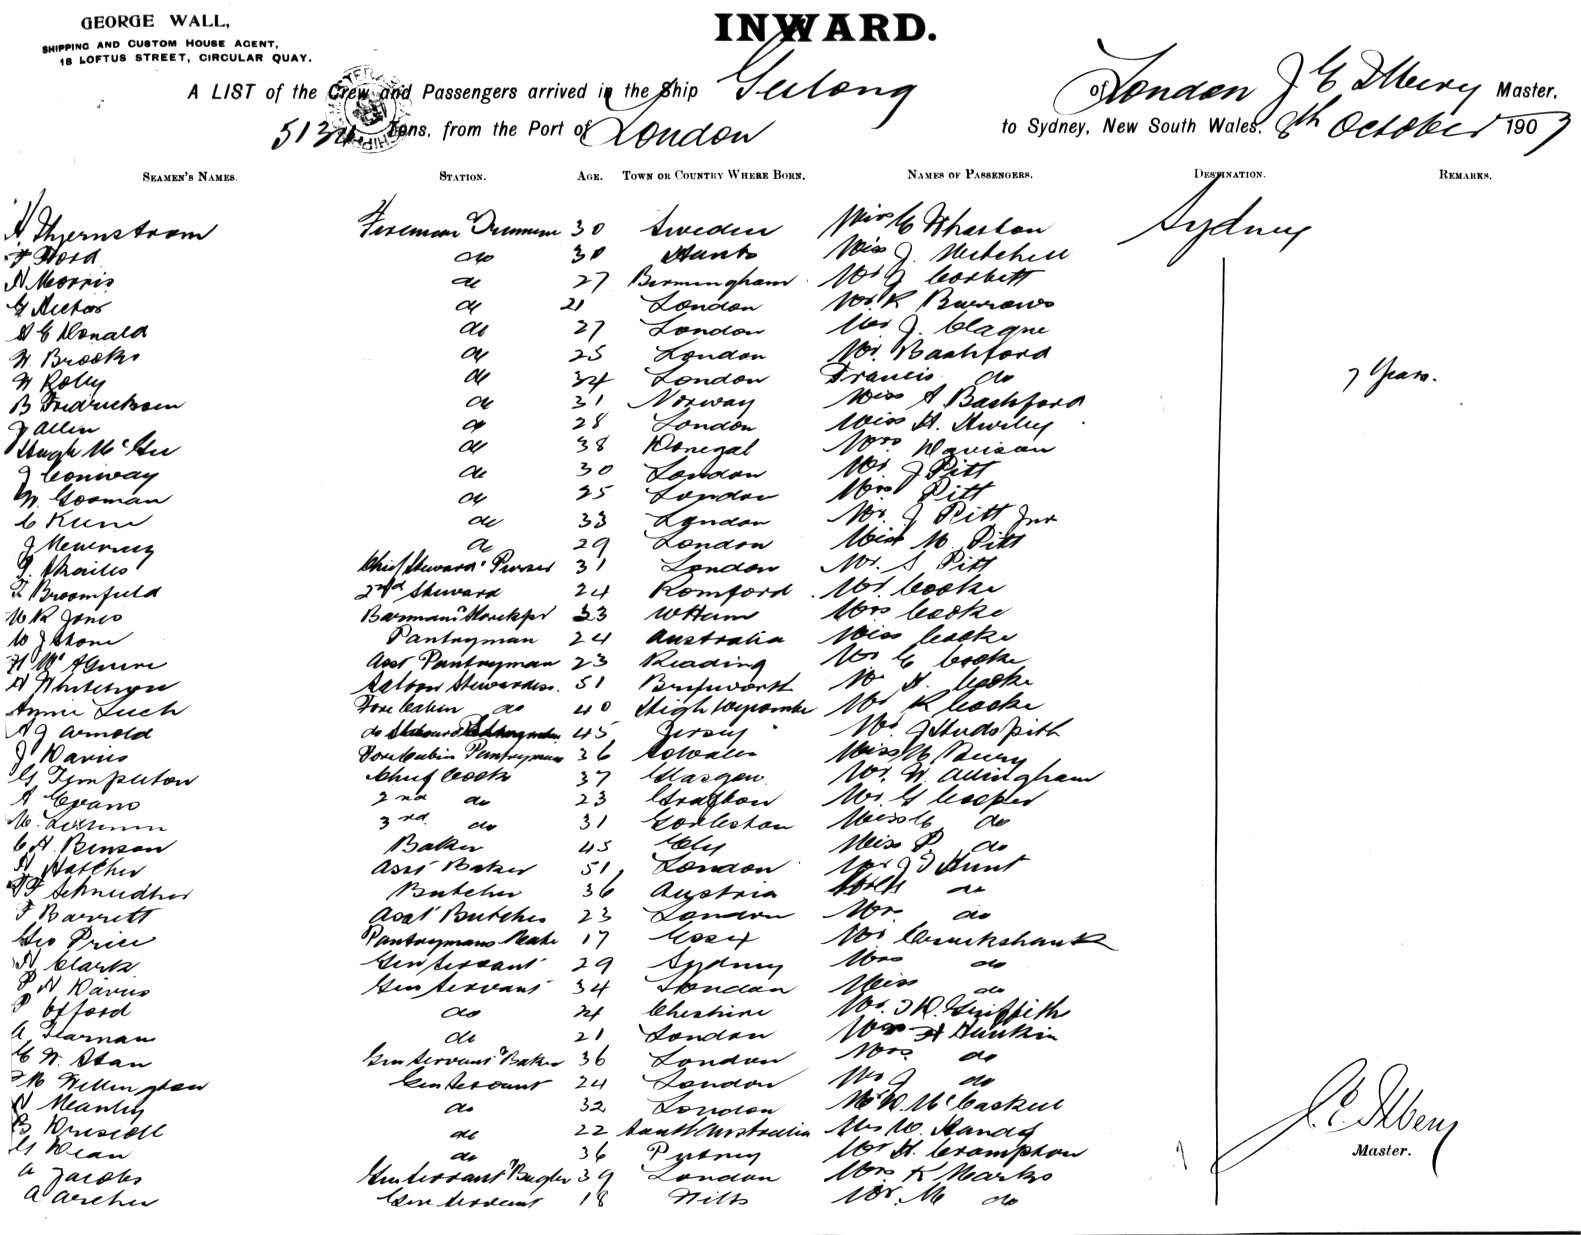 GEORGE WALL,
SHIPPING AND CUSTOM HOUSE AGENT,
18 LOFTUS STREET, CIRCULAR QUAY.
INWARD.
A LIST of the Crew and Passengers arrived in the Ship Geelong of London J E Ilbery Master,
Tons, from the Port of London to Sydney, New South Wales, 8th October 1907
SEAMEN'S NAMES. STATION. AGE. TOWN OR COUNTRY WHERE BORN. NAMES OF PASSENGERS. DESTINATION. REMARKS.
Fireman Trimmer 30 Sweden Wharton Sydney
F Ford do 30 Hants Miss J. Mitchell
A Morris do 27 Birmingham Mr J Corbett
G Hector do 21 London Mr. K Burrows
A E Donald do 27 London J. Clague
W Brooks do 25 London Mr. Bashford
W Roby do 34 London Francis do 7 Years.
B Fredricksen do 31 Norway Miss A Bashford
J Allen do 28 London Miss H.
Hugh McGee do 38 Donegal Mrs Davison
J Conway do 30 London Mr. J Pitt
W. Gorman do 25 London Mrs Pitt
C do 33 London Mr. J Pitt Jnr
J do 29 London Miss M. Pitt
Chief Steward & Purser 31 London Mr. S Pitt
F Broomfield 2nd Steward 24 Romford Mr. Cooke
W R Jones Barman & Storekpr 33 Mrs Cooke
W J Stone Pantryman 24 Australia Miss Cooke
Asst Pantryman 23 Reading Mr C Cooke
Saloon Stewardess. 51 H. Cooke
Annie Luch Fore Cabin do 40 High Wycombe Mr K Cooke
A J Arnold do 45 Jersey Mr. J Hudspith
J Davies Fore Cabin Pantryman 36 Miss
G Templeton Chief Cook 37 Glasgow Mr. W. Allingham
A Evans 2nd do 23 Grafton Mr. G Cooper
3rd do 31 Gorleston Miss C do
C H. Benson Baker 45 Ely Miss P. do
H Hatcher Asst Baker 51 London Mr J J Hunt
Butcher 36 Austria do
F Barrett Asst Butcher 23 London Mr. do
Geo Price Pantrymans Mate 17 Essex Mr Cruickshank
H Clark Gen Servant 29 Sydney Mrs do
P A Davies Gen Servant 34 London Miss do
P Offord do 24 Cheshire Mr. Griffith
A Harman do 21 London Hunkin
C W. Stan Gen Servant & Baker 36 London Mrs. do
M Wellington Gen Servant 24 London J do
H Manley do 32 London McCaskill
B Driscoll do 22 South Australia W. Handof
G Dean do 36 Putney Mr H. Crompton
A Jacobs Gen Servant & Bugler 39 London Mrs K Marks
A Archer Gen Servant 18 Wilts Mr. M do
J. E. Ilbery
Master.